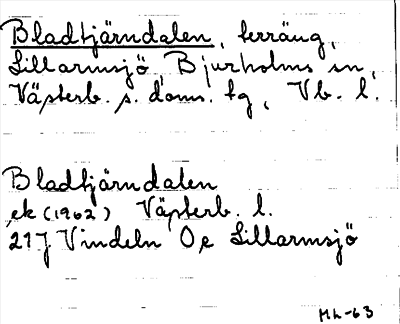 Bladtjärndalen, terräng,
Lillarmsjö, Bjurholms sn,
Västerb. s. doms. tg, Vb. l.
Bladtjärndalen
ek (1962) Västerb. l.
21J Vindeln 0e Lillarmsjö
ML-63